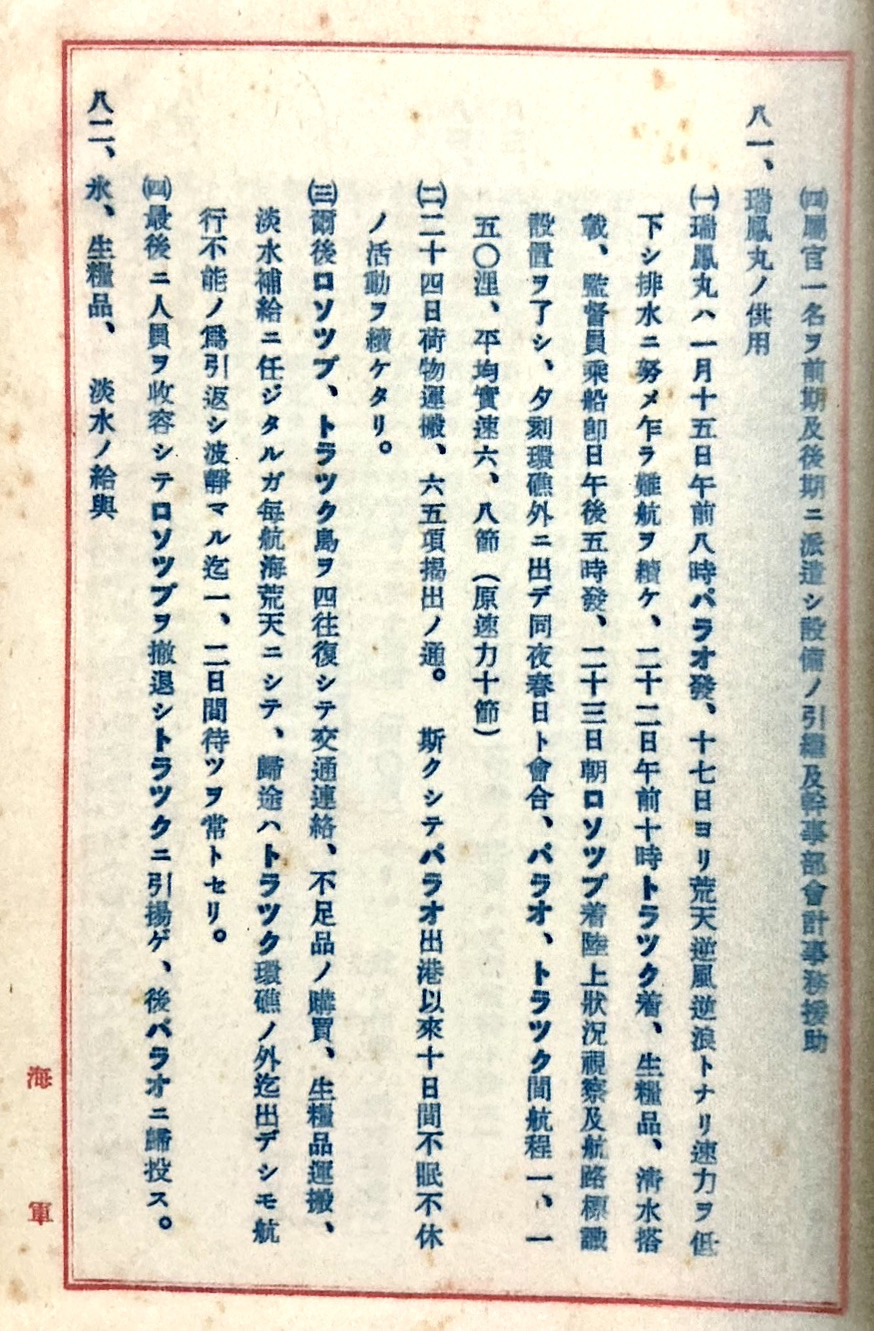 ㈣屬官一名ヲ前期及後期ニ派遣シ設備ノ引繼及幹事部會計事務援助
八一、瑞鳳丸ノ供用
㈠瑞鳳丸ハ一月十五日午前八時パラオ發、十七日ヨリ荒天逆風逆浪トナリ速力ヲ低
下シ排水ニ努メ乍ラ難航ヲ續ケ、二十二日午前十時トラツク着、生糧品、淸水搭
載、監督員乘船卽日午後五時發、二十三日朝ロソツプ着陸上狀況視察及航路標識
設置ヲ了シ、夕刻環礁外ニ出デ同夜春日ト會合、パラオ、トラツク間航程一、一
五〇浬、平均實速六、八節（原速力十節）
㈡二十四日荷物運搬、六五項揭出ノ通。　斯クシテパラオ出港以來十日間不眠不休
ノ活動ヲ續ケタリ。
㈢爾後ロソツプ、トラツク島ヲ四往復シテ交通連絡、不足品ノ購買、生糧品運搬、
淡水補給ニ任ジタルガ每航海荒天ニシテ、歸途ハトラツク環礁ノ外迄出デシモ航
行不能ノ爲引返シ波靜マル迄一、二日間待ツヲ常トセリ。
㈣最後ニ人員ヲ收容シテロソツプヲ撤退シトラツクニ引揚ゲ、後パラオニ歸投ス。
八二、氷、生糧品、淡水ノ給與
海軍